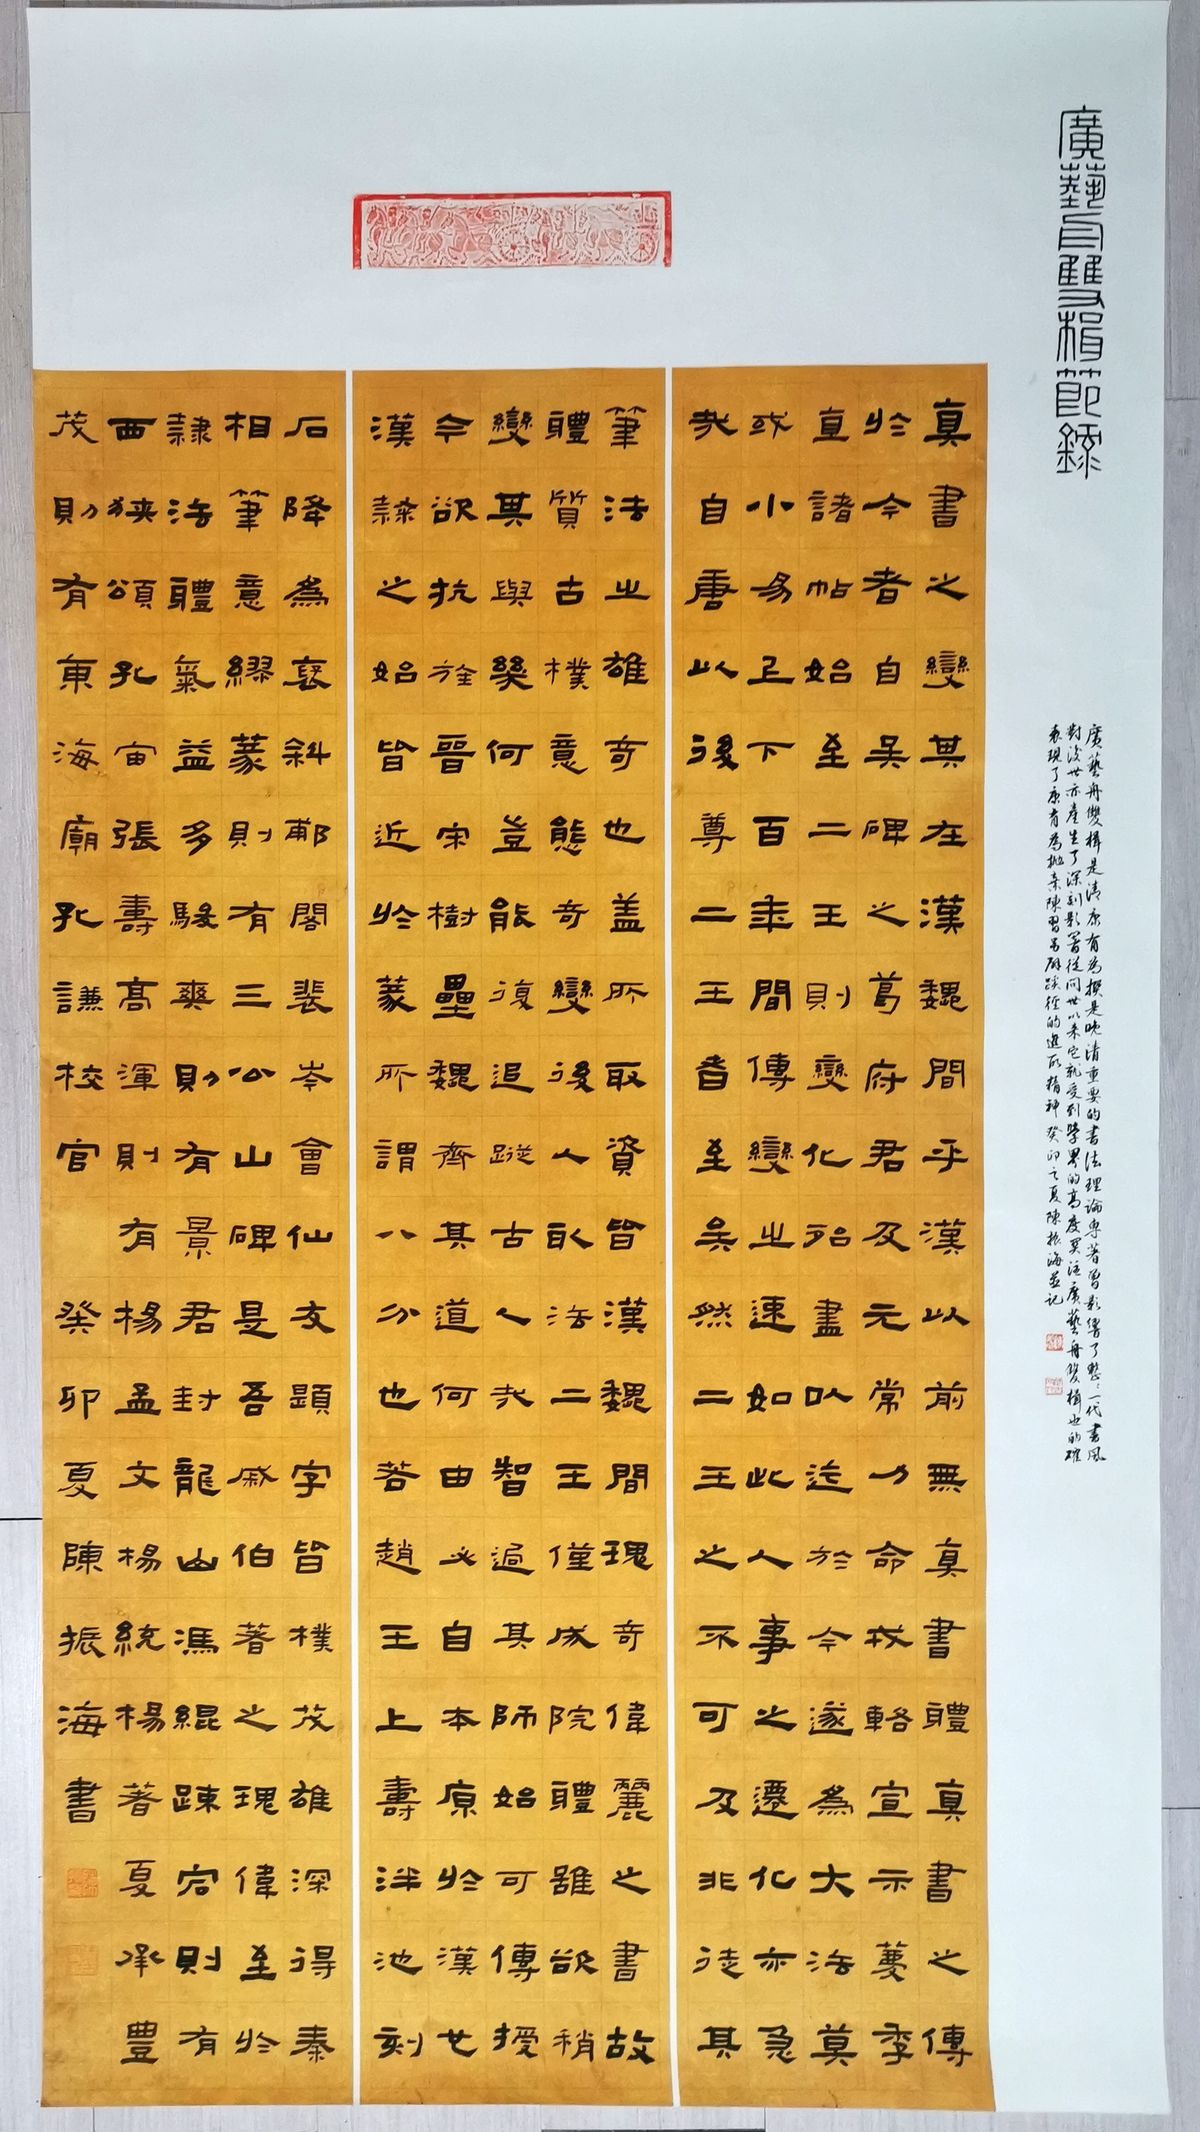 廣藝舟雙楫節錄
廣藝舟雙楫是清康有為撰是晚清重要的書法理論專著曾影響了整整一代書風
對後世亦產生了深刻影響從問世以來它就受到學界的高度關注廣藝舟雙楫也的確
表現了康有為拋棄陳習另辟蹊徑的進取精神癸卯之夏陳振海並記
真書之變其在漢魏間乎漢以前無真書體真書之傳
於今者自吳碑之葛府君及元常力命戎輅宣示薦季
直諸帖始至二王則變化殆盡以迄於今遂為大法莫
或小易上下百年間傳變之速如此人事之遷化亦急
哉自唐以後尊二王者至矣然二王之不可及非徒其
筆法之雄奇也蓋所取資皆漢魏間瑰奇偉麗之書故
體質古樸意態奇變後人取法二王僅成院體雖欲稍
變其與幾何豈能復追蹤古人哉智過其師始可傳授
今欲抗旌晉宋樹壘魏齊其道何由必自本原於漢也
漢隸之始皆近於篆所謂八分也若趙王上壽泮池刻
石降為褒斜郙閣裴岑會仙友題字皆樸茂雄深得秦
相筆意繆篆則有三公山碑是吾戚伯著之瑰偉至於
隸法體氣益多駿爽則有景君封龍山馮緄疎宕則有
西狹頌孔宙張壽高渾則有楊孟文楊統楊著夏承豐
茂則有東海廟孔謙校官
癸卯夏陳振海書